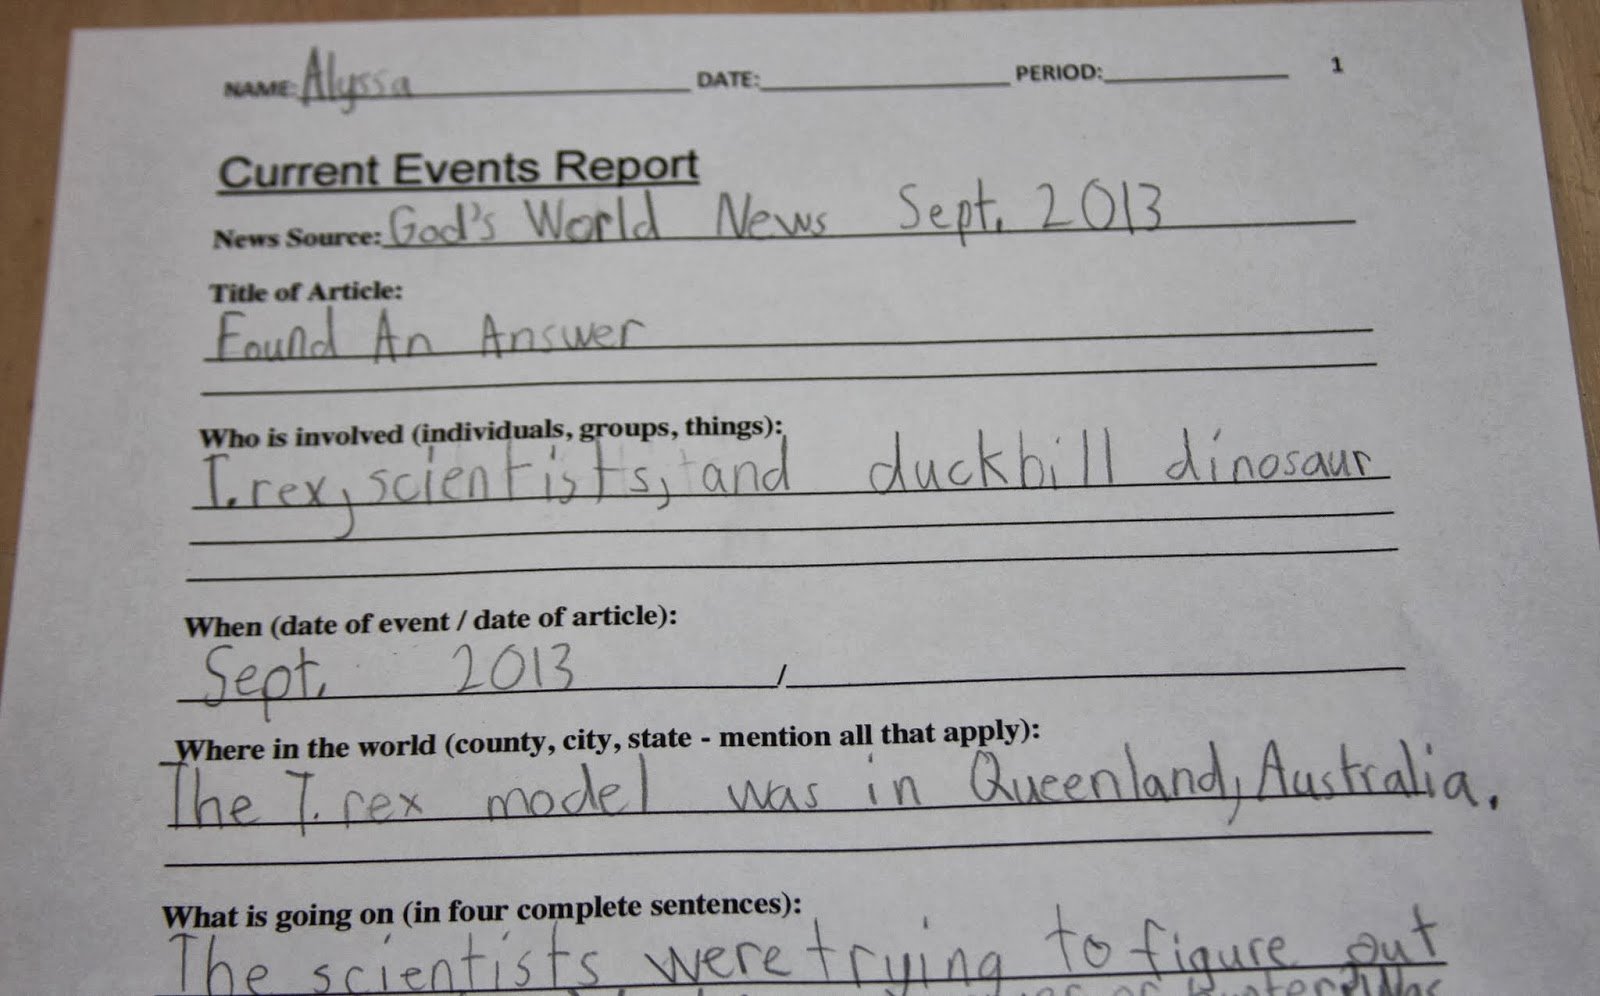 NAME: Alyssa DATE: PERIOD: 1
Current Events Report
News Source: God's World News Sept. 2013
Title of Article:
Found An Answer
Who is involved (individuals, groups, things):
T.rex, scientists, and duckbill dinosaur
When (date of event / date of article):
Sept. 2013 /
Where in the world (county, city, state - mention all that apply):
The T.rex model was in Queenland, Australia.
What is going on (in four complete sentences):
The scientists were trying to figure out